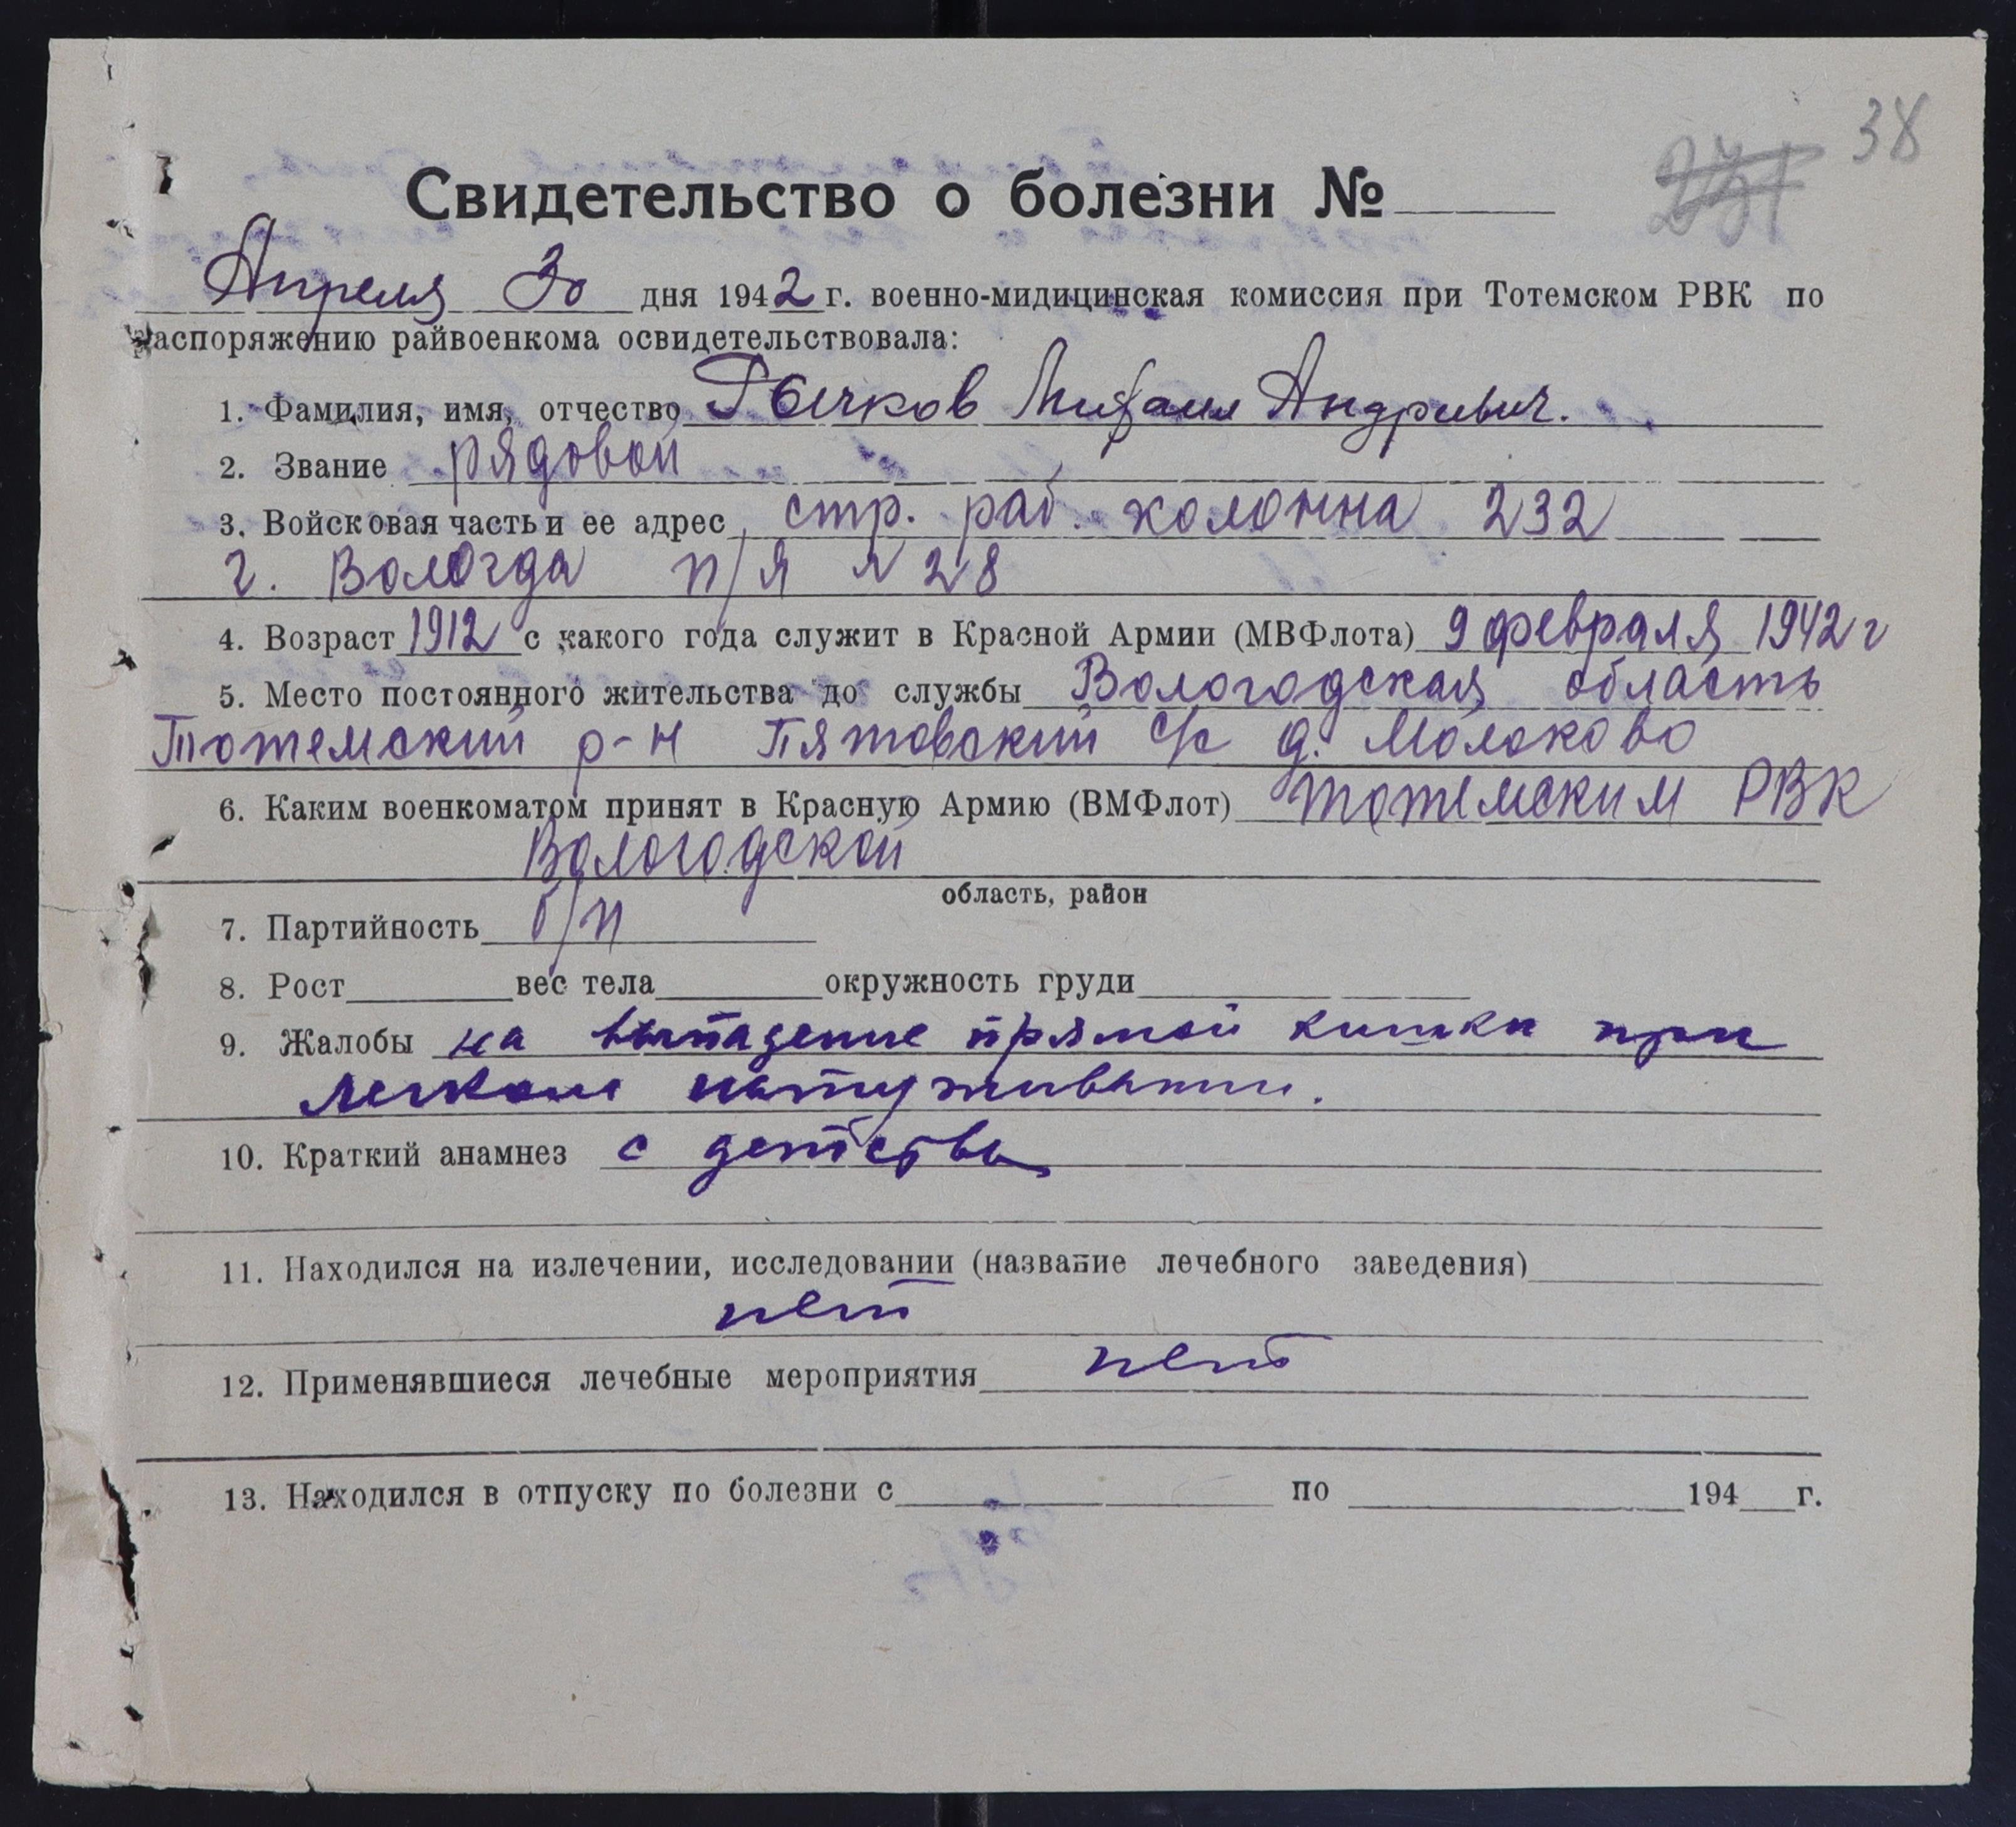 38
271
Свидетельство о болезни №
Апреля 30 дня 1942 г. военно-мидицинская комиссия при Тотемском РВК по
распоряжению райвоенкома освидетельствовала:
1. Фамилия, имя, отчество Рычков Михаил Андриевич.
2. Звание рядовой
3. Войсковая часть и ее адрес стр. раб. колонна 232
г. Вологда п/я N 28
4. Возраст 1912 с какого года служит в Красной Армии (МВФлота) 9 февраля 1942 г
5. Место постоянного жительства до службы Вологодская область
Тотемский р-н Пятовский с/с д. Молоково
6. Каким военкоматом принят в Красную Армию (ВМФлот) Тотемским РВК
Вологодской
область, район
7. Партийность б/п
8. Рост вес тела окружность груди
9. Жалобы на выпадение прямой кишки при
легком натуживании.
10. Краткий анамнез с детства
11. Находился на излечении, исследовании (название лечебного заведения)
нет
12. Применявшиеся лечебные мероприятия нет
13. Находился в отпуску по болезни с по 194 г.